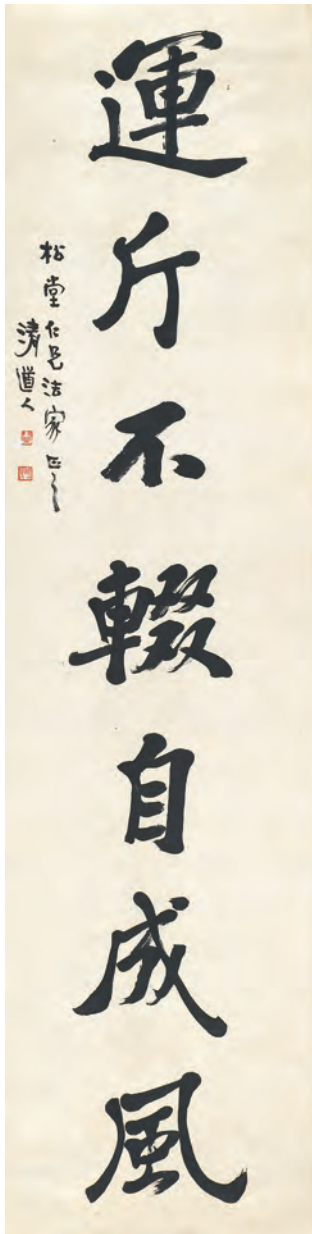 運斤不輟自成風
松堂仁兄法家正之
清道人